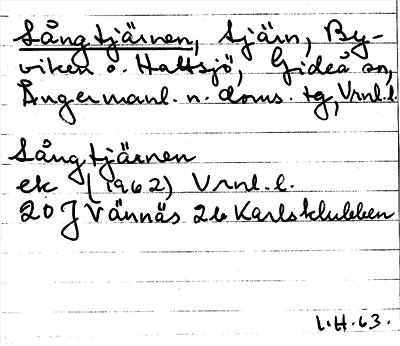 Sångtjärnen, tjärn, By-
viken o. Hattsjö, Gideå sn,
Ångermanl. n. doms. tg, Vrnl. l.
Sångtjärnen
ek (1962) Vrnl. l.
20 J Vännäs 2b Karlsklubben
L.H. 63.